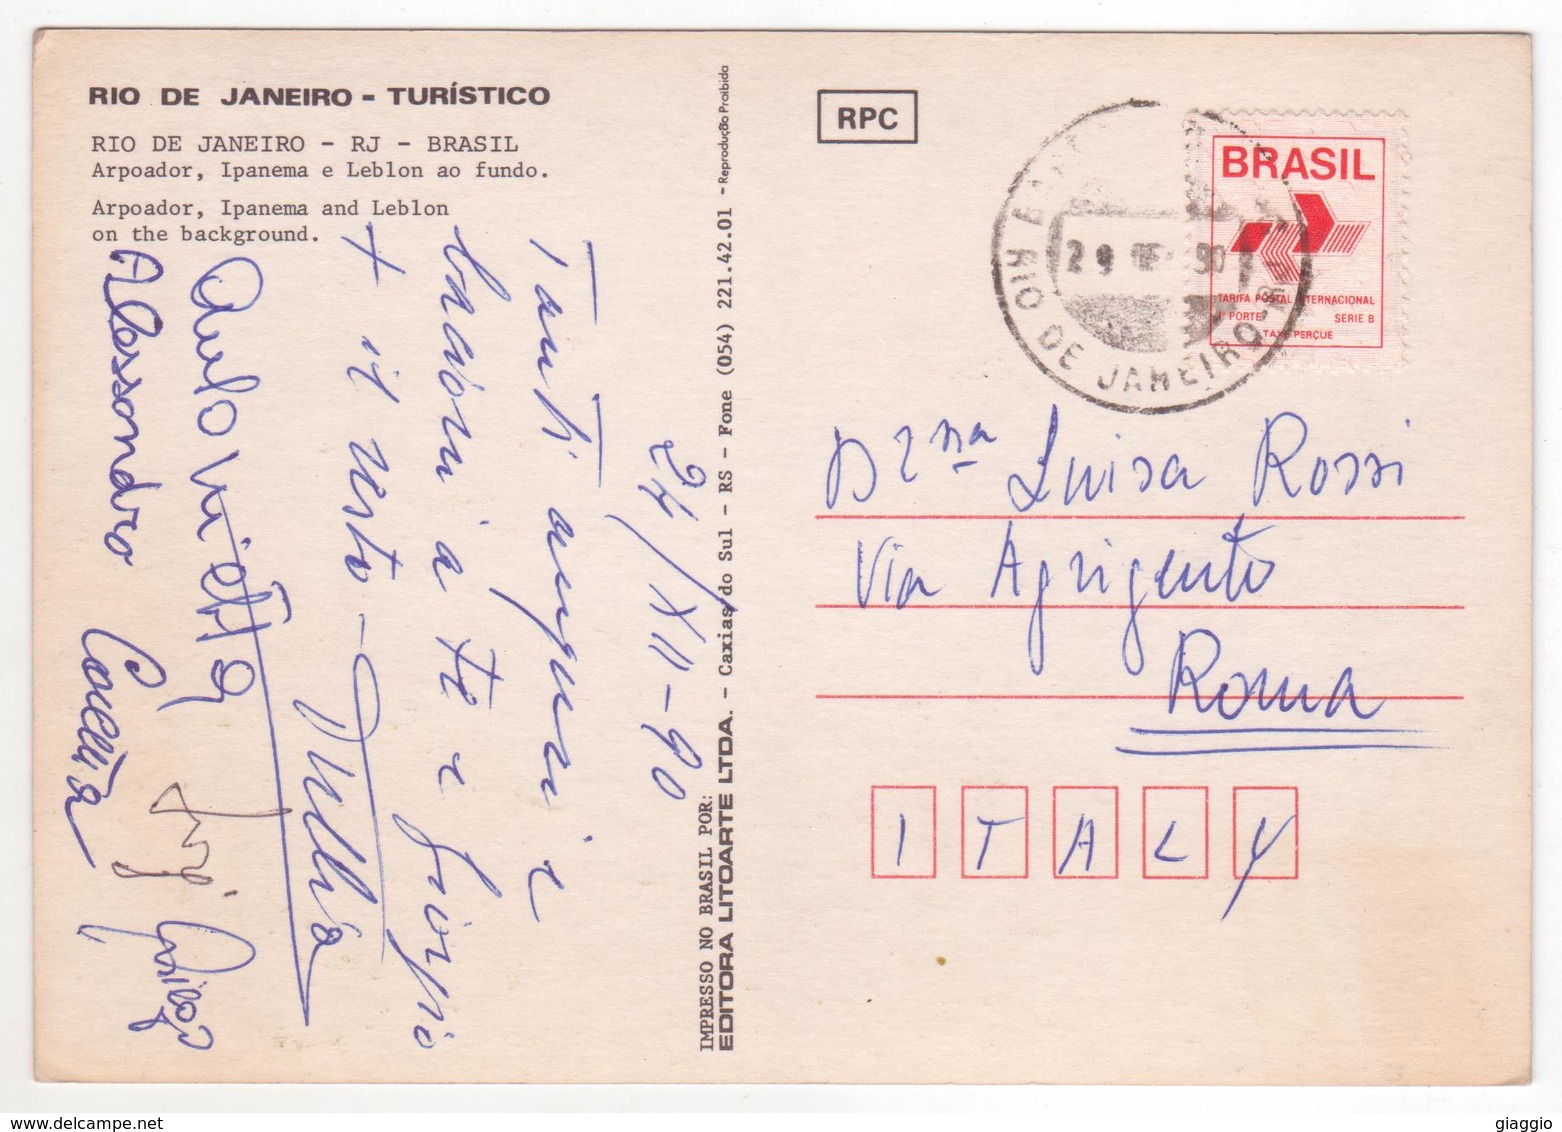 RIO DE JANEIRO - TURÍSTICO
RIO DE JANEIRO - RJ - BRASIL
Arpoador, Ipanema e Leblon ao fundo.
Arpoador, Ipanema and Leblon
on the background.
24/XII-90
Tanti auguri e
bacioni a te e Giorgio
+ il resto -
Tullia
Alessandro
IMPRESSO NO BRASIL POR:
EDITORA LITOARTE LTDA. - Caxias do Sul - RS - Fone (054) 221.42.01 - Reprodução Proibida
RPC
BRASIL
TARIFA POSTAL INTERNACIONAL
1º PORTE SERIE B
TAXE PERÇUE
29 90
RIO DE JANEIRO-RJ
Luisa Rossi
Via Agrigento
Roma
ITALY
www.delcampe.net
giaggio